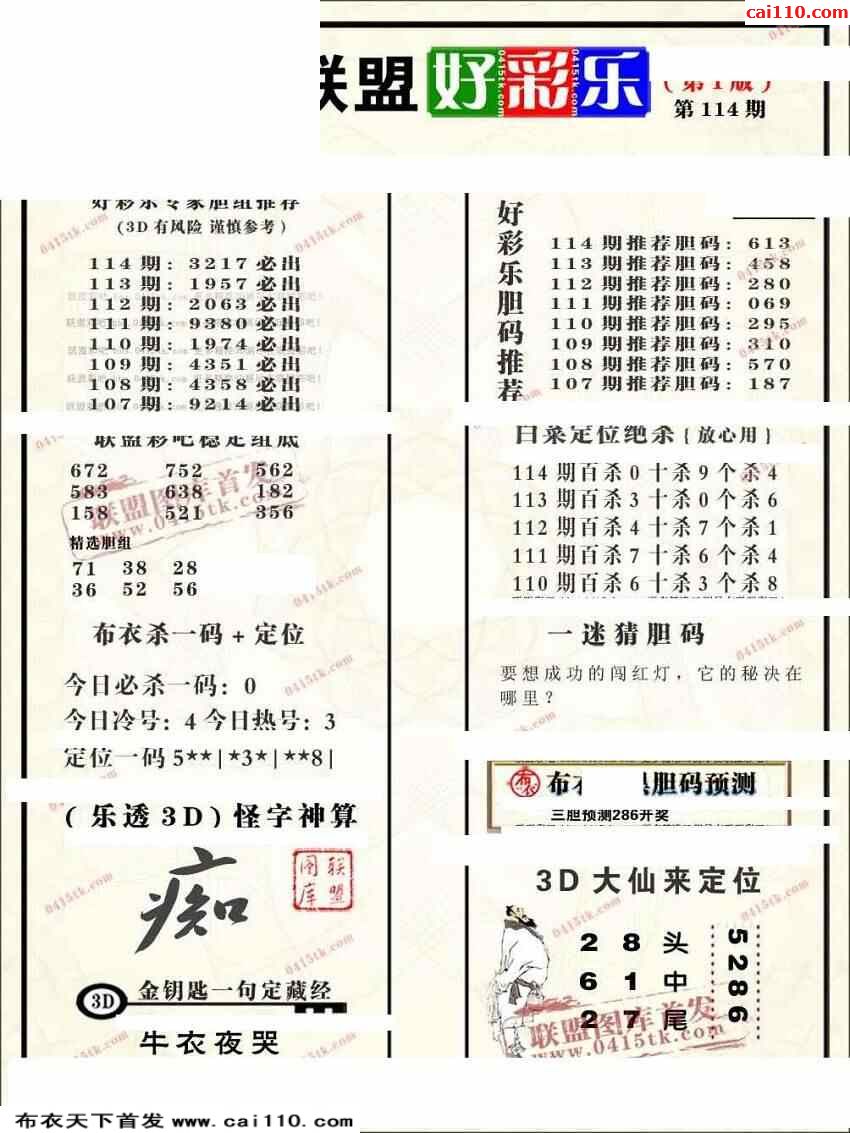 cai110.com
联盟好彩乐
(第1版)
第114期
好彩乐专家胆组推荐
(3D有风险 谨慎参考)
114期: 3217必出
113期: 1957必出
112期: 2063必出
111期: 9380必出
110期: 1974必出
109期: 4351必出
108期: 4358必出
107期: 9214必出
好彩乐胆码推荐
114期推荐胆码: 613
113期推荐胆码: 458
112期推荐胆码: 280
111期推荐胆码: 069
110期推荐胆码: 295
109期推荐胆码: 310
108期推荐胆码: 570
107期推荐胆码: 187
联盟彩吧稳定组底
672 752 562
583 638 182
158 521 356
精选胆组
71 38 28
36 52 56
白菜定位绝杀{放心用}
114期百杀0十杀9个杀4
113期百杀3十杀0个杀6
112期百杀4十杀7个杀1
111期百杀7十杀6个杀4
110期百杀6十杀3个杀8
布衣杀一码+定位
今日必杀一码: 0
今日冷号: 4 今日热号: 3
定位一码5**|*3*|**8|
一迷猜胆码
要想成功的闯红灯，它的秘决在
哪里？
布衣 胆码预测
三胆预测286开奖
(乐透3D)怪字神算
痴
联盟图库
3D 金钥匙一句定藏经
牛衣夜哭
3D大仙来定位
2 8 头
6 1 中
2 7 尾
5286
联盟图库首发
www.0415tk.com
布衣天下首发 www.cai110.com